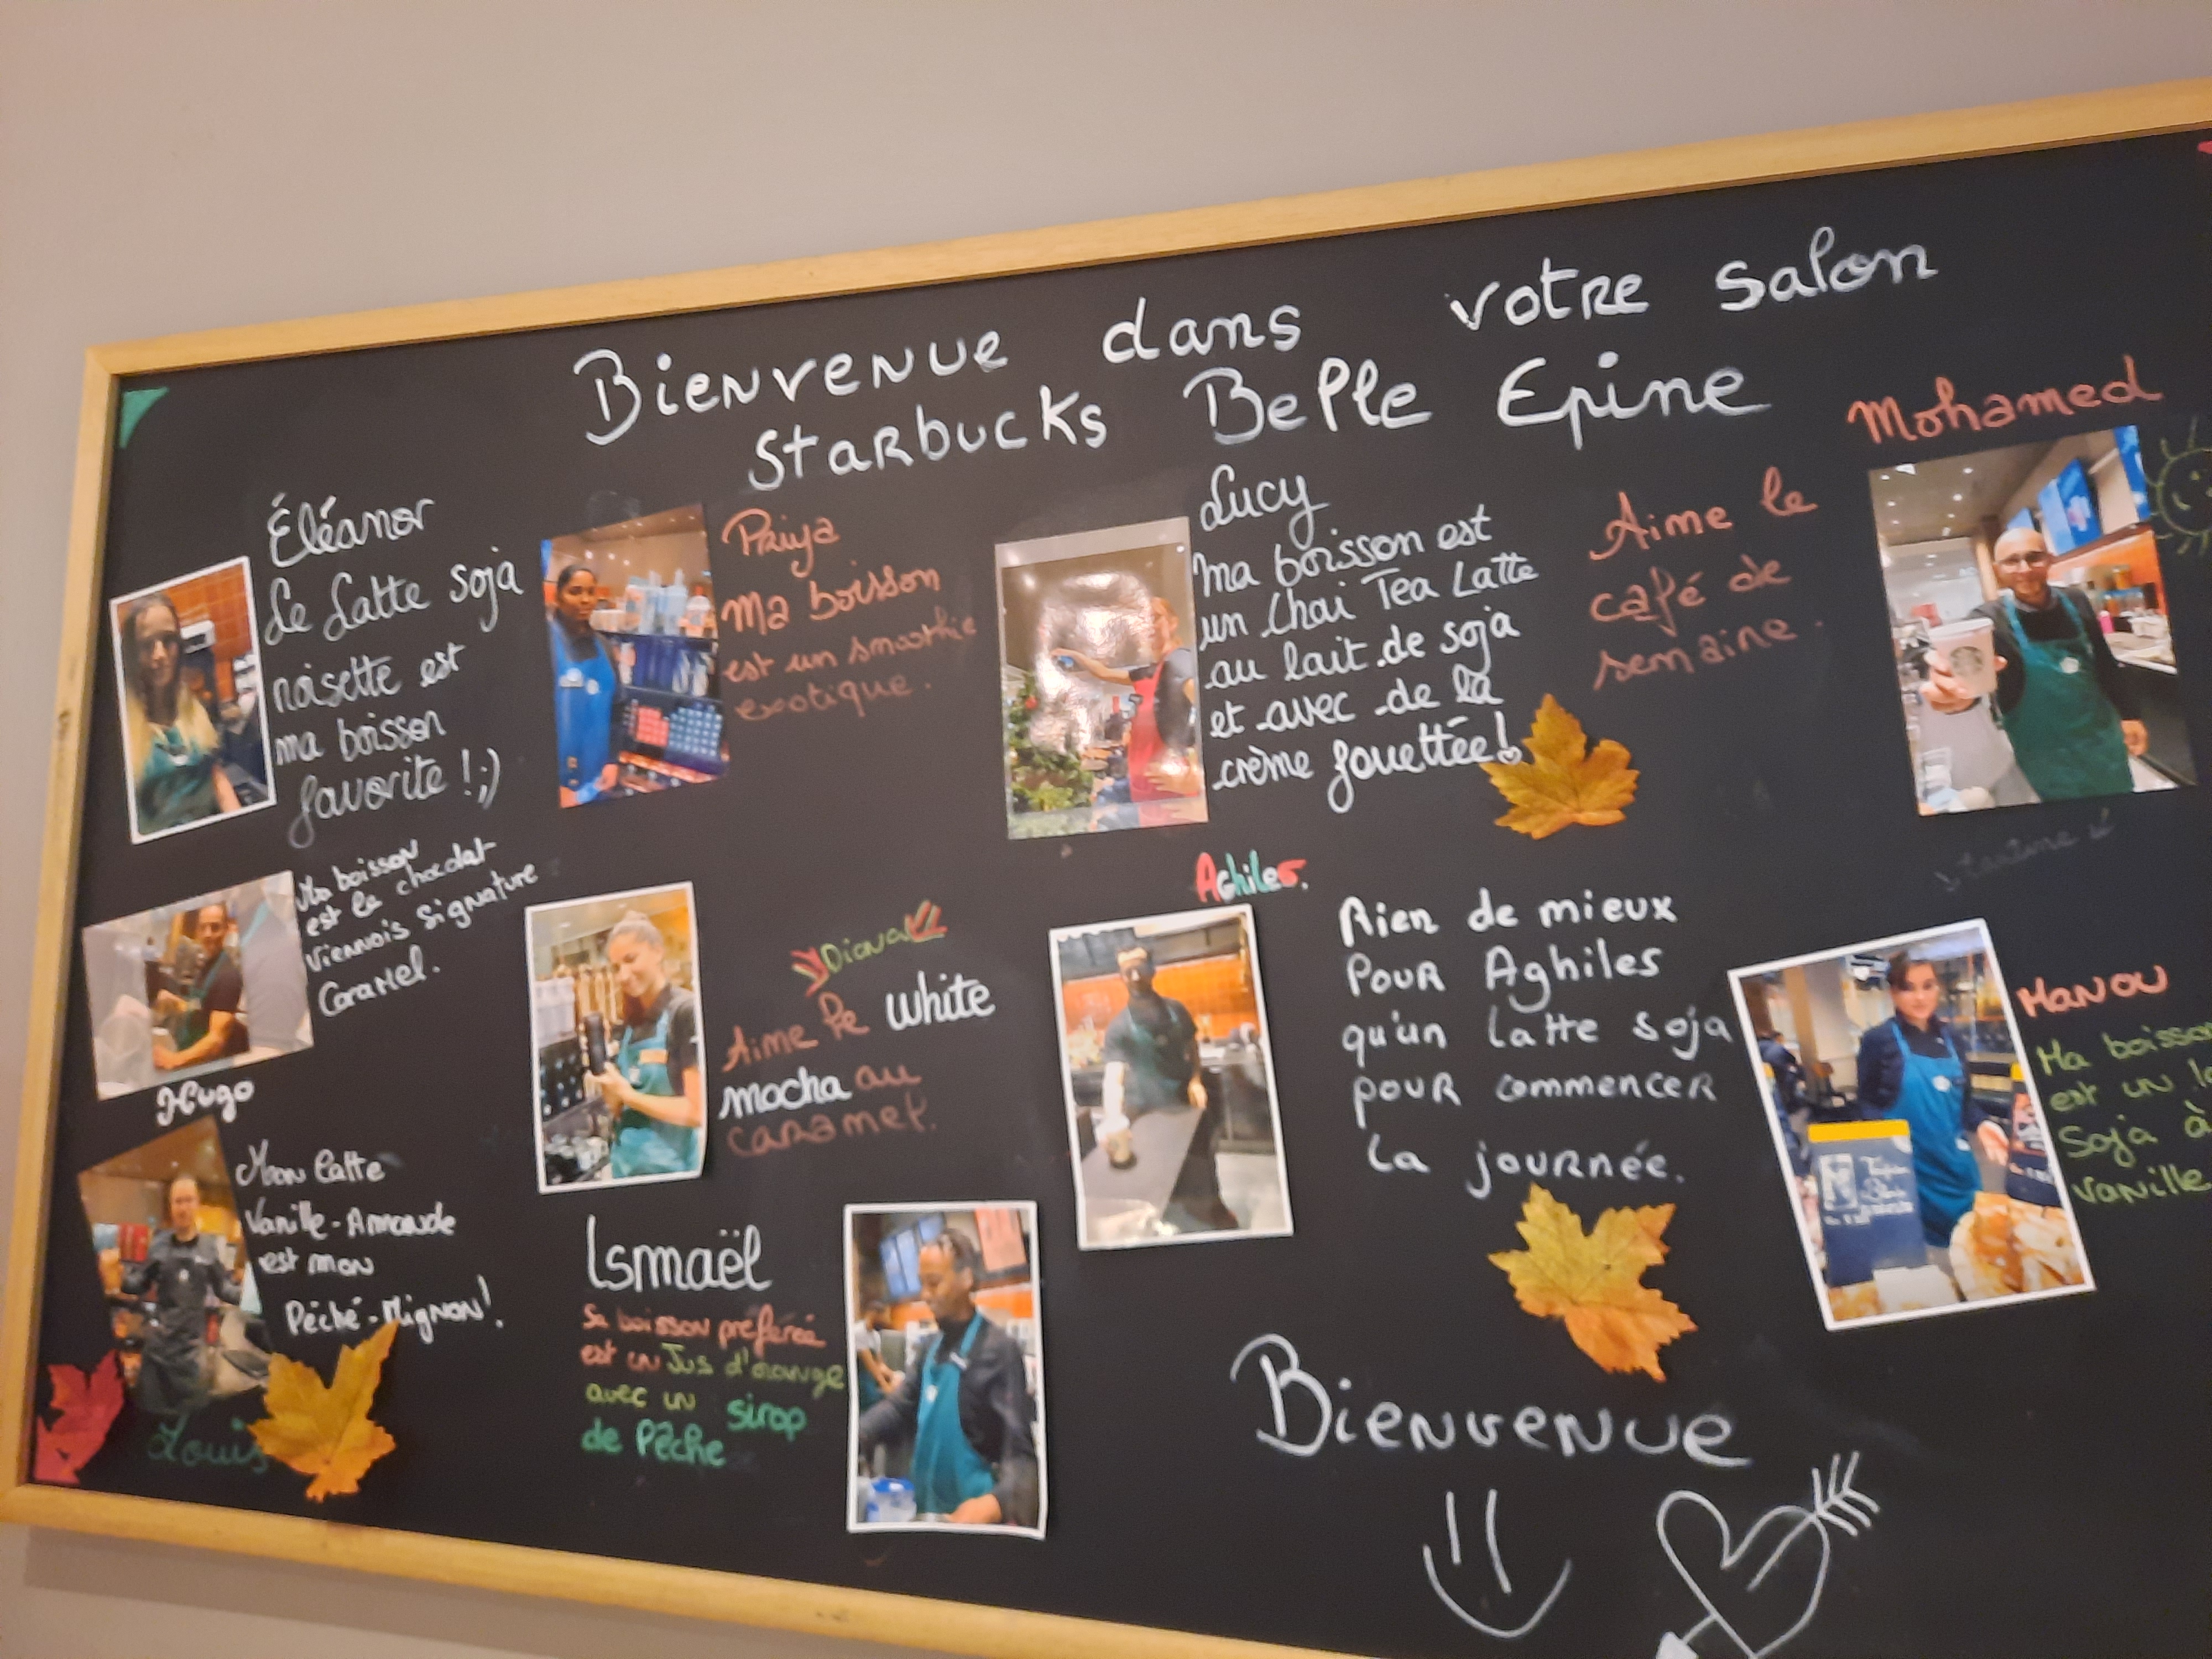 Bienvenue dans votre salon
Starbucks Belle Epine
Éléanor
Le Latte soja
noisette est
ma boisson
favorite ! ;)
Priya
Ma boisson
est un smoothie
exotique.
Lucy
Ma boisson est
un Chai Tea Latte
au lait de soja
et avec de la
crème fouettée!
Mohamed
Aime le
café de
semaine.
Ma boisson
est le chocolat
viennois signature
Caramel.
Hugo
Diana
Aime le white
mocha au
caramel.
Aghiles.
Rien de mieux
Pour Aghiles
qu'un latte soja
pour commencer
la journée.
Manou
Ma boisson
est un
Soja à
vanille
Mon latte
Vanille-Amande
est mon
Péché-Mignon!
Louis
Ismaël
Sa boisson préférée
est un Jus d'orange
avec un sirop
de Pêche
Bienvenue